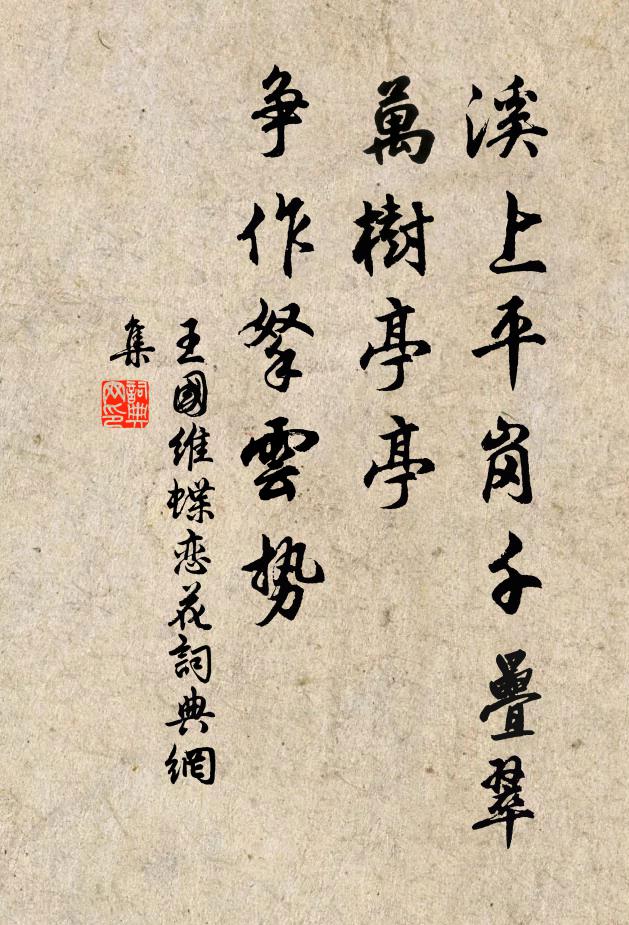 溪上平崗千疊翠
萬樹亭亭
争作拏雲勢
王國維蝶恋花詞典網
集
詞典
网印